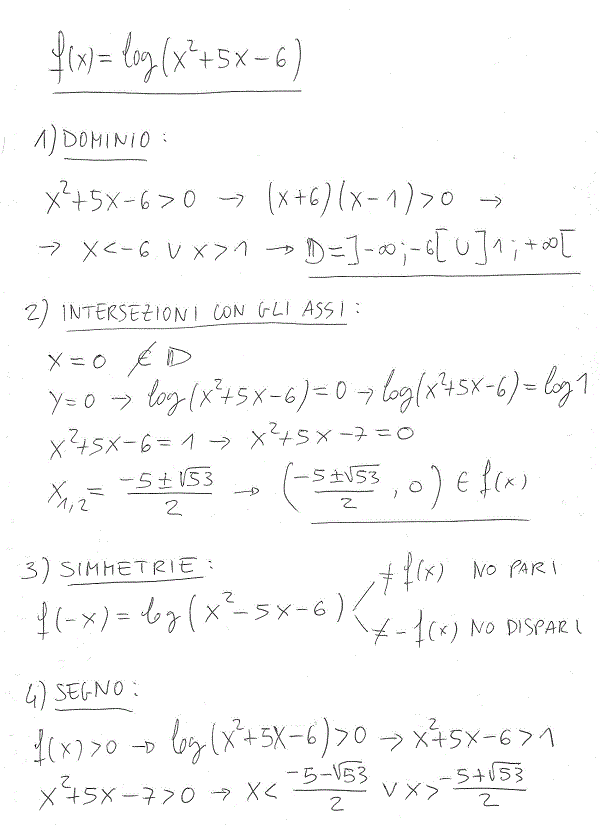 f(x) = log(x²+5x-6)
1) DOMINIO:
x²+5x-6>0 → (x+6)(x-1)>0 →
→ x<-6 ∨ x>1 → D=]-∞;-6[ ∪ ]1;+∞[
2) INTERSEZIONI CON GLI ASSI:
x=0 ∉ D
y=0 → log(x²+5x-6)=0 → log(x²+5x-6)=log1
x²+5x-6=1 → x²+5x-7=0
x₁,₂ = (-5±√53)/2 → ((-5±√53)/2, 0) ∈ f(x)
3) SIMMETRIE:
≠ f(x) NO PARI
f(-x) = log(x²-5x-6)
≠ -f(x) NO DISPARI
4) SEGNO:
f(x)>0 → log(x²+5x-6)>0 → x²+5x-6>1
x²+5x-7>0 → x< (-5-√53)/2 ∨ x> (-5+√53)/2